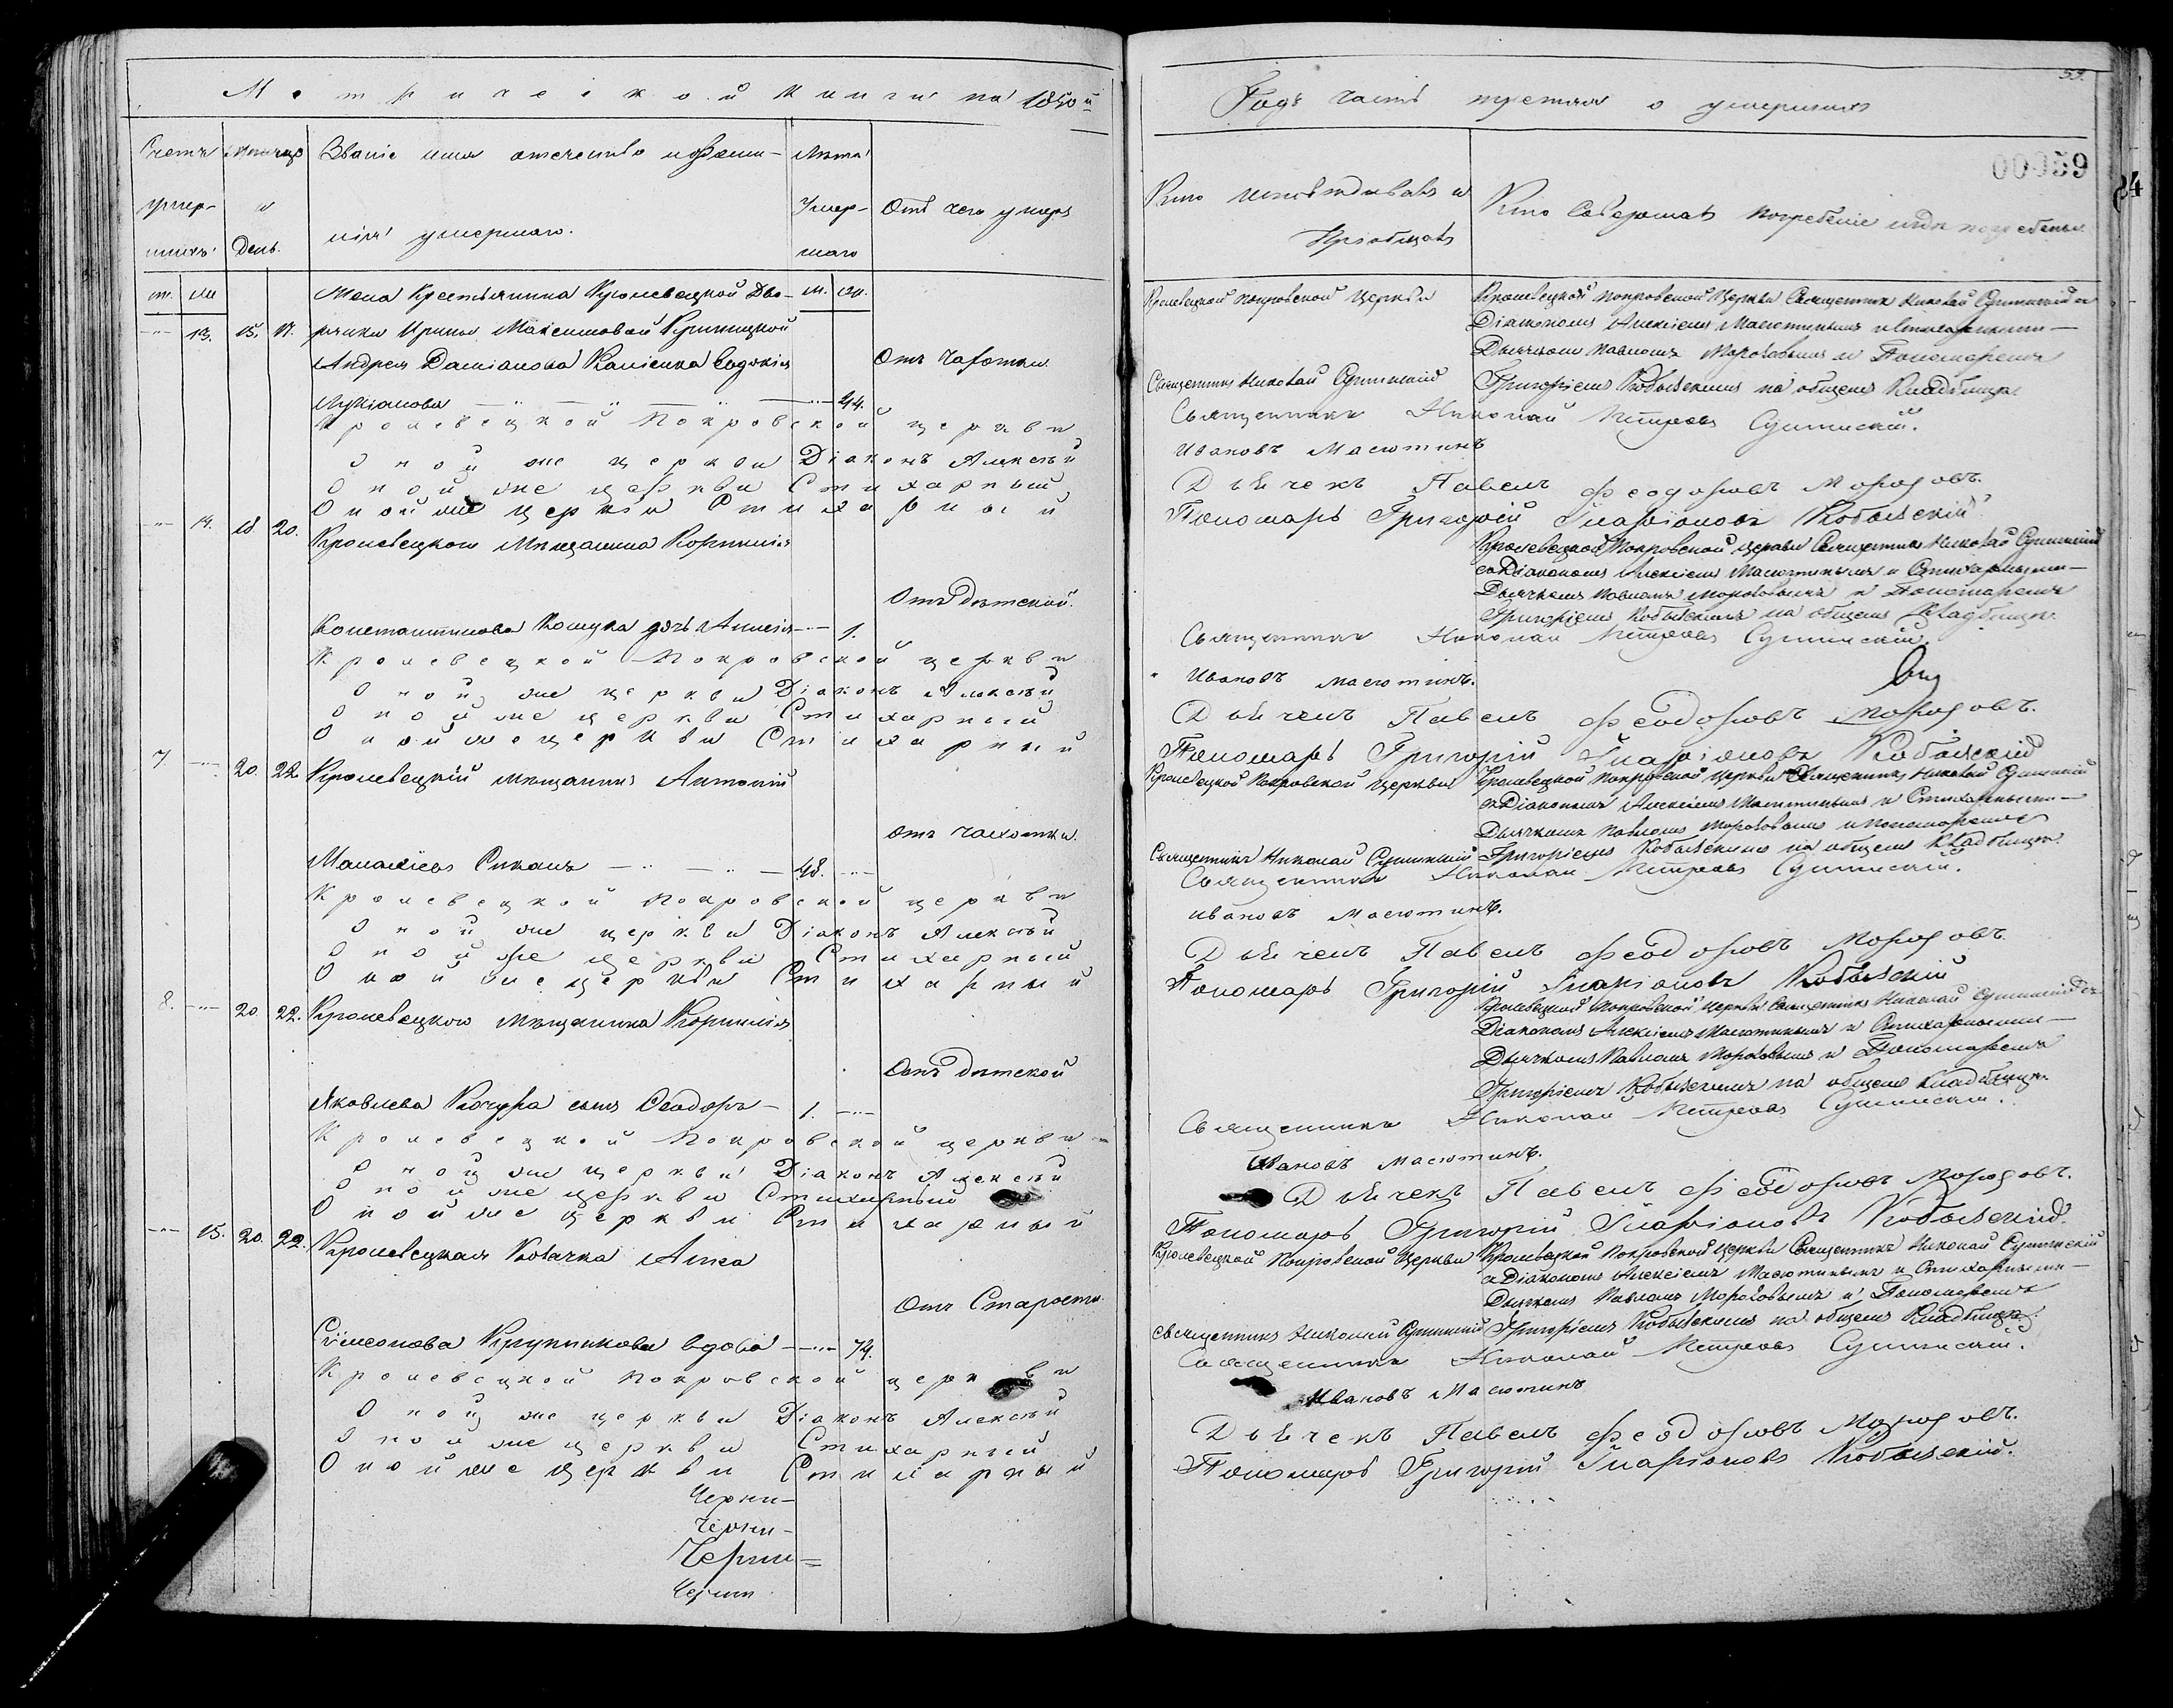 Метрической книги на 1850й
Годъ часть третья о умершихъ
59.
00059
Счетъ умер- шихъ
Мѣсяцъ и День.
Званіе имя отечество и фами- лія умершаго.
Лѣта Умер- шаго
Отъ чего умеръ
Кто исповѣдивалъ и Пріобщалъ
Кто Совершалъ погребеніе и гдѣ погребены
м. ж.
м. ж.
13. 15. 17.
Жена Крестьянина Кролевецкой Дво-
рянки Ирины Максимовой Криницкой
Андрея Даміанова Евдокія
Лукіанова 44.
Отъ Чахотки
Кролевецкой Покровской Церкви
Священникъ Николай
Кролевецкой Покровской Церкви Священникъ Николай
Діакономъ Алексіемъ Масютинымъ и Стихарными
Дьячкомъ Павломъ Морозовымъ и Пономаремъ
Григоріемъ на общемъ Кладбищѣ
Кролевецкой Покровской церкви Священникъ Николай Петровъ
Оной же церкви Діаконъ Алексѣй Ивановъ Масютинъ
Оной же церкви Стихарный Дьячекъ Павелъ Феодоровъ Морозовъ.
Оной же церкви Стихарный Пономарь Григорій Иларіоновъ
14. 18. 20.
Кролевецкого Мѣщанина Корнилія
Константинова дочь 1.
Отъ дѣтской.
Кролевецкой Покровской церкви Священникъ Николай
съ Діакономъ Алексіемъ Масютинымъ и Стихарными
Дьячкомъ Павломъ Морозовымъ и Пономаремъ
Григоріемъ на общемъ Кладбищѣ.
Кролевецкой Покровской церкви Священникъ Николай Петровъ
Оной же церкви Діаконъ Алексѣй Ивановъ Масютинъ.
Оной же церкви Стихарный Дьячекъ Павелъ Феодоровъ Морозовъ.
Оной же церкви Стихарный Пономарь Григорій Иларіоновъ
7. 20. 22.
Кролевецкій мѣщанинъ Антоній
48.
Отъ Чахотки.
Кролевецкой Покровской Церкви
Священникъ Николай
Кролевецкой Покровской Церкви Священникъ Николай
съ Діакономъ Алексіемъ Масютинымъ и Стихарными
Дьячкомъ Павломъ Морозовымъ и Пономаремъ
Григоріемъ на общемъ Кладбищѣ
Кролевецкой Покровской церкви Священникъ Николай Петровъ
Оной же церкви Діаконъ Алексѣй Ивановъ Масютинъ.
Оной же церкви Стихарный Дьячекъ Павелъ Феодоровъ Морозовъ
Оной же церкви Стихарный Пономарь Григорій Иларіоновъ
8. 20. 22.
Кролевецкого Мѣщанина Корнилія
Яковлева сынъ Феодоръ 1.
Отъ дѣтской
Кролевецкой Покровской Церкви Священникъ Николай
Діакономъ Алексіемъ Масютинымъ и Стихарными
Дьячкомъ Павломъ Морозовымъ и Пономаремъ
Григоріемъ на общемъ Кладбищѣ.
Кролевецкой Покровской церкви Священникъ Николай Петровъ
Оной же церкви Діаконъ Алексѣй Ивановъ Масютинъ.
Оной же церкви Стихарный Дьячекъ Павелъ Феодоровъ Морозовъ.
Оной же церкви Стихарный Пономарь Григорій Иларіоновъ
15. 20. 22.
Кролевецкая Козачка Анна
Симеонова вдова 74.
Отъ Старости
Кролевецкой Покровской Церкви
Священникъ Николай
Кролевецкой Покровской Церкви Священникъ Николай
съ Діакономъ Алексіемъ Масютинымъ и Стихарными
Дьячкомъ Павломъ Морозовымъ и Пономаремъ
Григоріемъ на общемъ Кладбищѣ
Кролевецкой Покровской церкви Священникъ Николай Петровъ
Оной же церкви Діаконъ Алексѣй Ивановъ Масютинъ
Оной же церкви Стихарный Дьячекъ Павелъ Феодоровъ Морозовъ.
Оной же церкви Стихарный Пономарь Григорій Иларіоновъ
Черни-
Черни-
Черни-